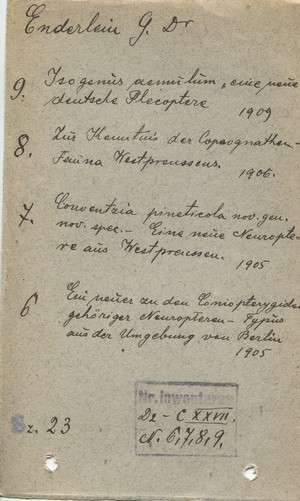 Enderlein G. Dr
9. Isogenus aemulum, eine neue
deutsche Plecoptere
1909
8. Zur Kenntnis der Copeognathen-
Fauna Westpreussens.
1906.
7. Conventzia pineticola nov. gen.
nov. spec. - Eine neue Neuropte-
re aus Westpreussen.
1905
6 Ein neuer zu den Coniopterygiden
gehöriger Neuropteren - Typus
aus der Umgebung von Berlin
1905
Sz. 23
Nr. Inwentarza
Dz - C XXVII.
N. 6,7,8,9.